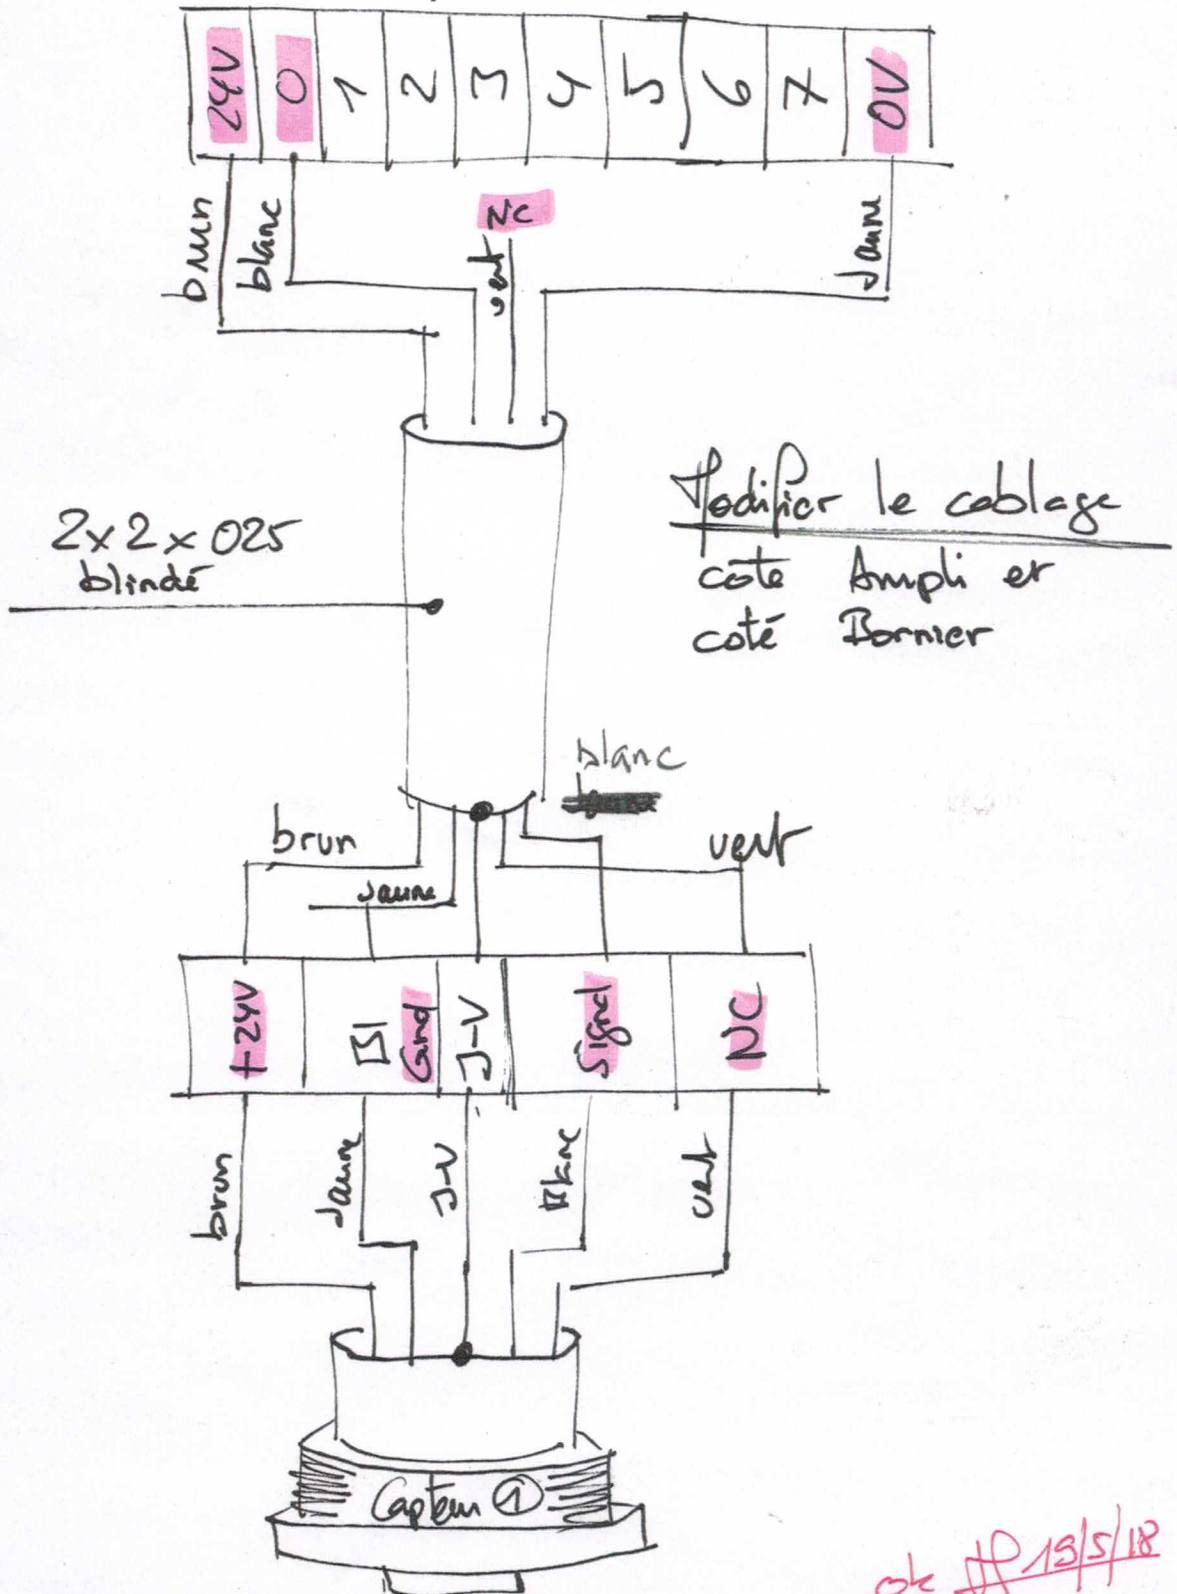 24V 0 1 2 3 4 5 6 7 0V
brun
blanc
NC
vert
Jaune
2x2x025
blindé
Modifier le cablage
coté Ampli et
coté Bornier
blanc
brun
vert
Jaune
+24V Bl Gnd J-V Signal NC
brun
Jaune
J-V
Blanc
vert
Capteur 1
ok 19/5/18